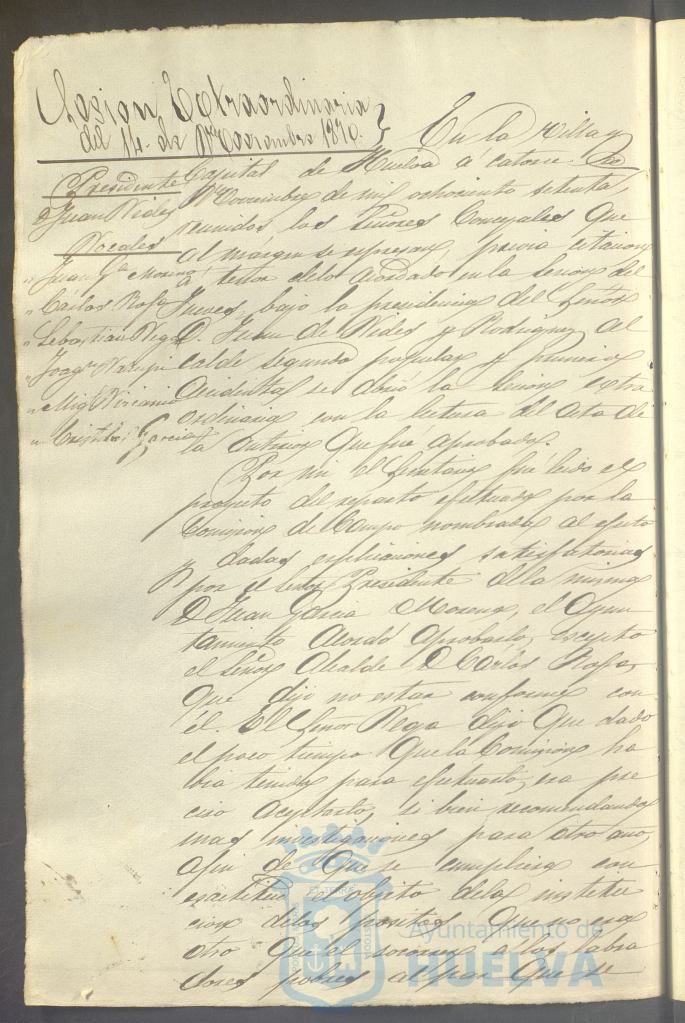 Sesion Extraordinaria
del 14 de Noviembre 1870.
Presidente
D Juan Nides
Vocales
" Juan Ga. Moreno
" Carlos Rofa
" Sebastian Vega
" Joaqn.
" Migl.
" Cristobl. Garcia
En la Villa y
Capital de Huelva a catorce de
Noviembre de mil ochociento setenta,
reunidos los Señores Concejales que
al márgen se espresan, previa citacion
á tenor delo acordado en la sesion del
Jueves, bajo la presidencia del Señor
D. Juan de Nides y Rodriguez, Al
calde segundo popular y primero
accidental se abrió la sesion extra
ordinaria con la lectura del acta de
la anterior que fué aprobada.
Por mi el Secretario fué leido el
proyecto del reparto efectuado por la
Comision de Campo nombrada al efecto
y dadas esplicaciones satisfactorias
por el Señor Presidente dela misma
D Juan Garcia Moreno, el Ayun
tamiento acordó aprobarlo, escepto
el Señor Alcalde D Carlos Rofa,
que dijo no estar conforme con
él. El Señor Vega dijo que dado
el poco tiempo que la Comision ha
bia tenido para efectuarlo, era pre
ciso aceptarlo, si bien recomendando
mas investigaciones para otro año,
afin de que se cumpliera con
exactitud el objeto dela institu
cion delos positos, que no era
otro que el socorrer a los labra
dores pobres al par que se
Ayuntamiento de
HUELVA